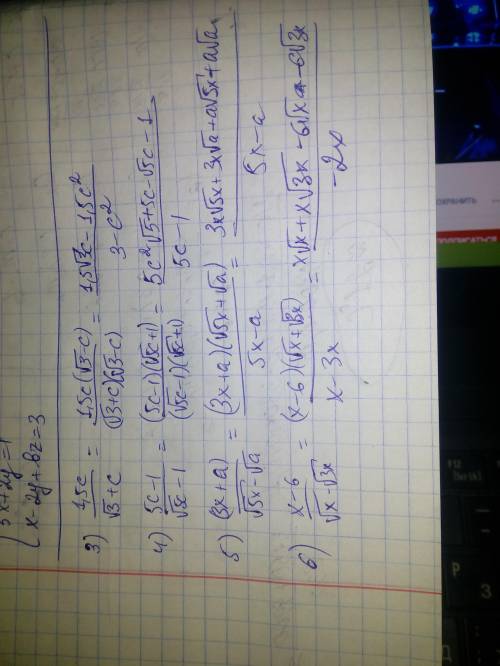 3x+2y=1
x-2y+8z=3
3) 1,5c/(√3+c) = 1,5c(√3-c)/((√3+c)(√3-c)) = (1,5√3c-1,5c²)/(3-c²)
4) (5c-1)/(√5c-1) = (5c-1)(√5c+1)/((√5c-1)(√5c+1)) = (5c²√5+5c-√5c-1)/(5c-1)
5) (3x+a)/(√5x-√a) = (3x+a)(√5x+√a)/(5x-a) = (3x√5x+3x√a+a√5x+a√a)/(5x-a)
6) (x-6)/(√x-√3x) = (x-6)(√x+√3x)/(x-3x) = (x√x+x√3x-6√x-6√3x)/(-2x)
F12
P
3